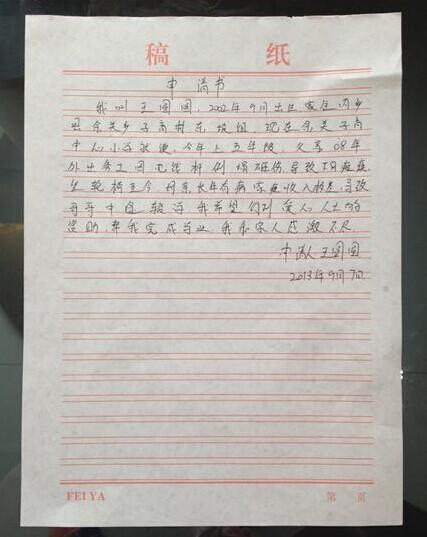 稿 纸
申请书
我叫王园园，2002年9月出生家住内乡
县余关乡子育村东坡组，现在余关子育
中心小学就读，今年上五年级，父亲08年
外出务工因电线杆倒塌砸伤导致下身瘫痪
坐轮椅至今，母亲长年有病家庭收入极差，导致
哥哥中途辍学，我希望得到爱心人士的
资助，帮我完成学业，我和家人感激不尽。
申请人王园园
2013年9月7日
FEI YA
第 页